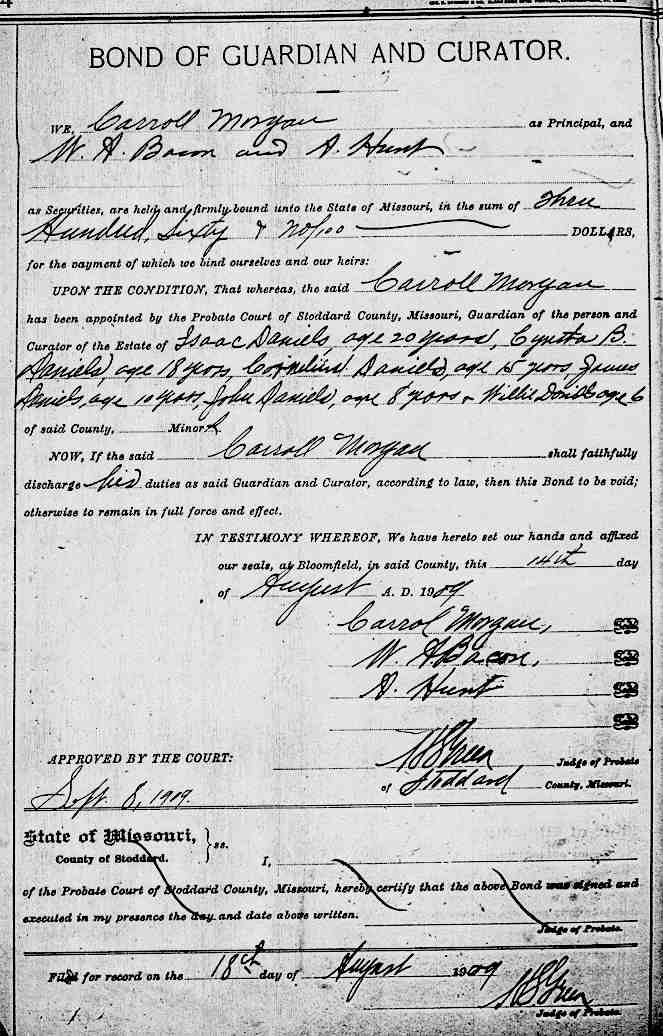 BOND OF GUARDIAN AND CURATOR.
WE, Carroll Morgan as Principal, and
W. A. Bacon and A. Hunt
as Securities, are held and firmly bound unto the State of Missouri, in the sum of Three
Hundred, Sixty & no/100 DOLLARS,
for the payment of which we bind ourselves and our heirs:
UPON THE CONDITION, That whereas, the said Carroll Morgan
has been appointed by the Probate Court of Stoddard County, Missouri, Guardian of the person and
Curator of the Estate of Isaac Daniels, age 20 years, Cyntha B.
Daniels, age 18 years, Cornelius Daniels, age 15 years, James
Daniels, age 10 years, John Daniels, age 8 years & Willis Daniels age 6
of said County, Minors.
NOW, If the said Carroll Morgan shall faithfully
discharge his duties as said Guardian and Curator, according to law, then this Bond to be void;
otherwise to remain in full force and effect.
IN TESTIMONY WHEREOF, We have hereto set our hands and affixed
our seals, at Bloomfield, in said County, this 14th day
of August A. D. 1909
Carrol Morgan,
W. A Bacon,
A. Hunt
APPROVED BY THE COURT: Green Judge of Probate
Sept. 8, 1909. of Stoddard County, Missouri.
State of Missouri, } ss.
County of Stoddard.
I,
of the Probate Court of Stoddard County, Missouri, hereby certify that the above Bond was signed and
executed in my presence the day and date above written.
Judge of Probate.
Filed for record on the 18th day of August 1909
Green
Judge of Probate.